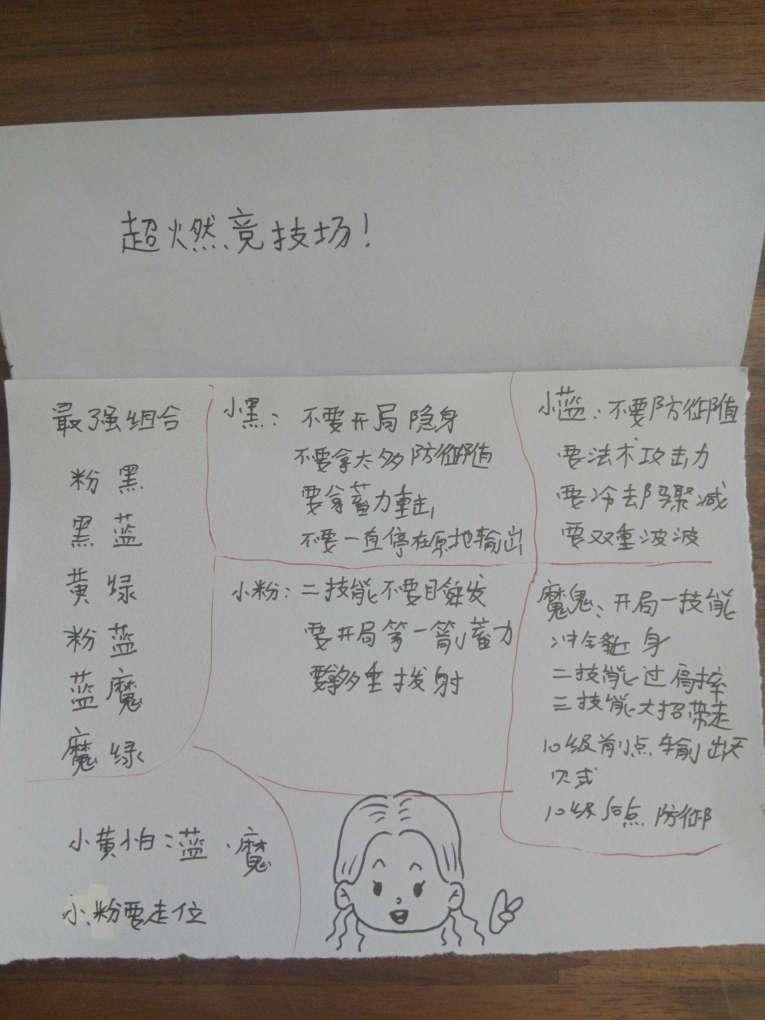 超燃竞技场!
最强组合
粉 黑
黑 蓝
黄 绿
粉 蓝
蓝 魔
魔 绿
小黑: 不要开局隐身
不要拿太多防御值
要拿蓄力重击
不要一直停在原地输出
小蓝: 不要防御值
要法术攻击力
要冷却骤减
要双重波波
小粉: 二技能不要自发
要开局第一箭蓄力
要多重拨射
魔鬼: 开局一技能
冲锋近身
二技能过
三技能大招带走
10级前点输出
式
10级后点防御
小黄怕: 蓝、魔
小粉要走位